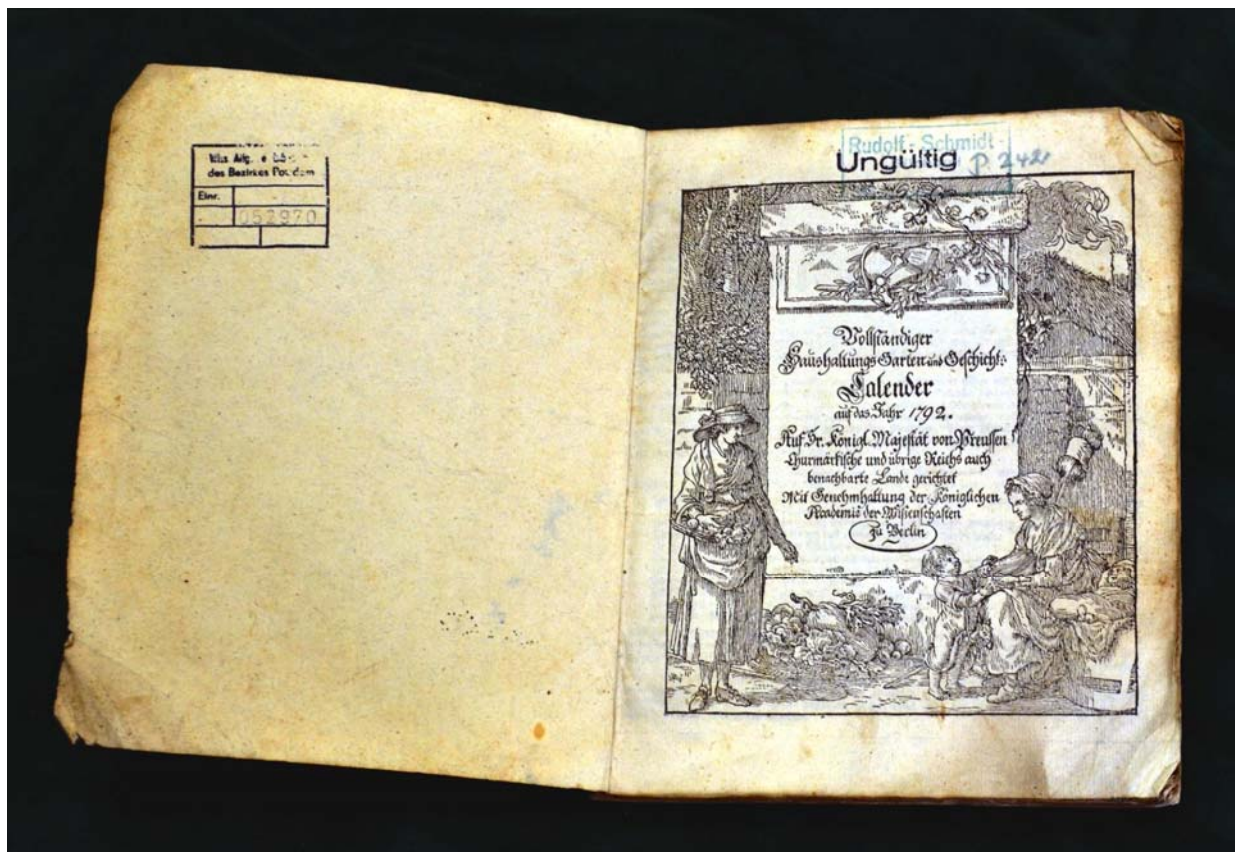 des Bezirkes Potsdam
Einr.
052970
Rudolf - Schmidt -
Ungültig
P. 242
Vollständiger
Haushaltungs Garten und Geschichts-
Calender
auf das Jahr 1792.
Auf Sr. Königl. Majestät von Preussen
Churmärkische und übrige Reichs auch
benachbarte Lande gerichtet
Mit Genehmhaltung der Königlichen
Academie der Wissenschaften
zu Berlin